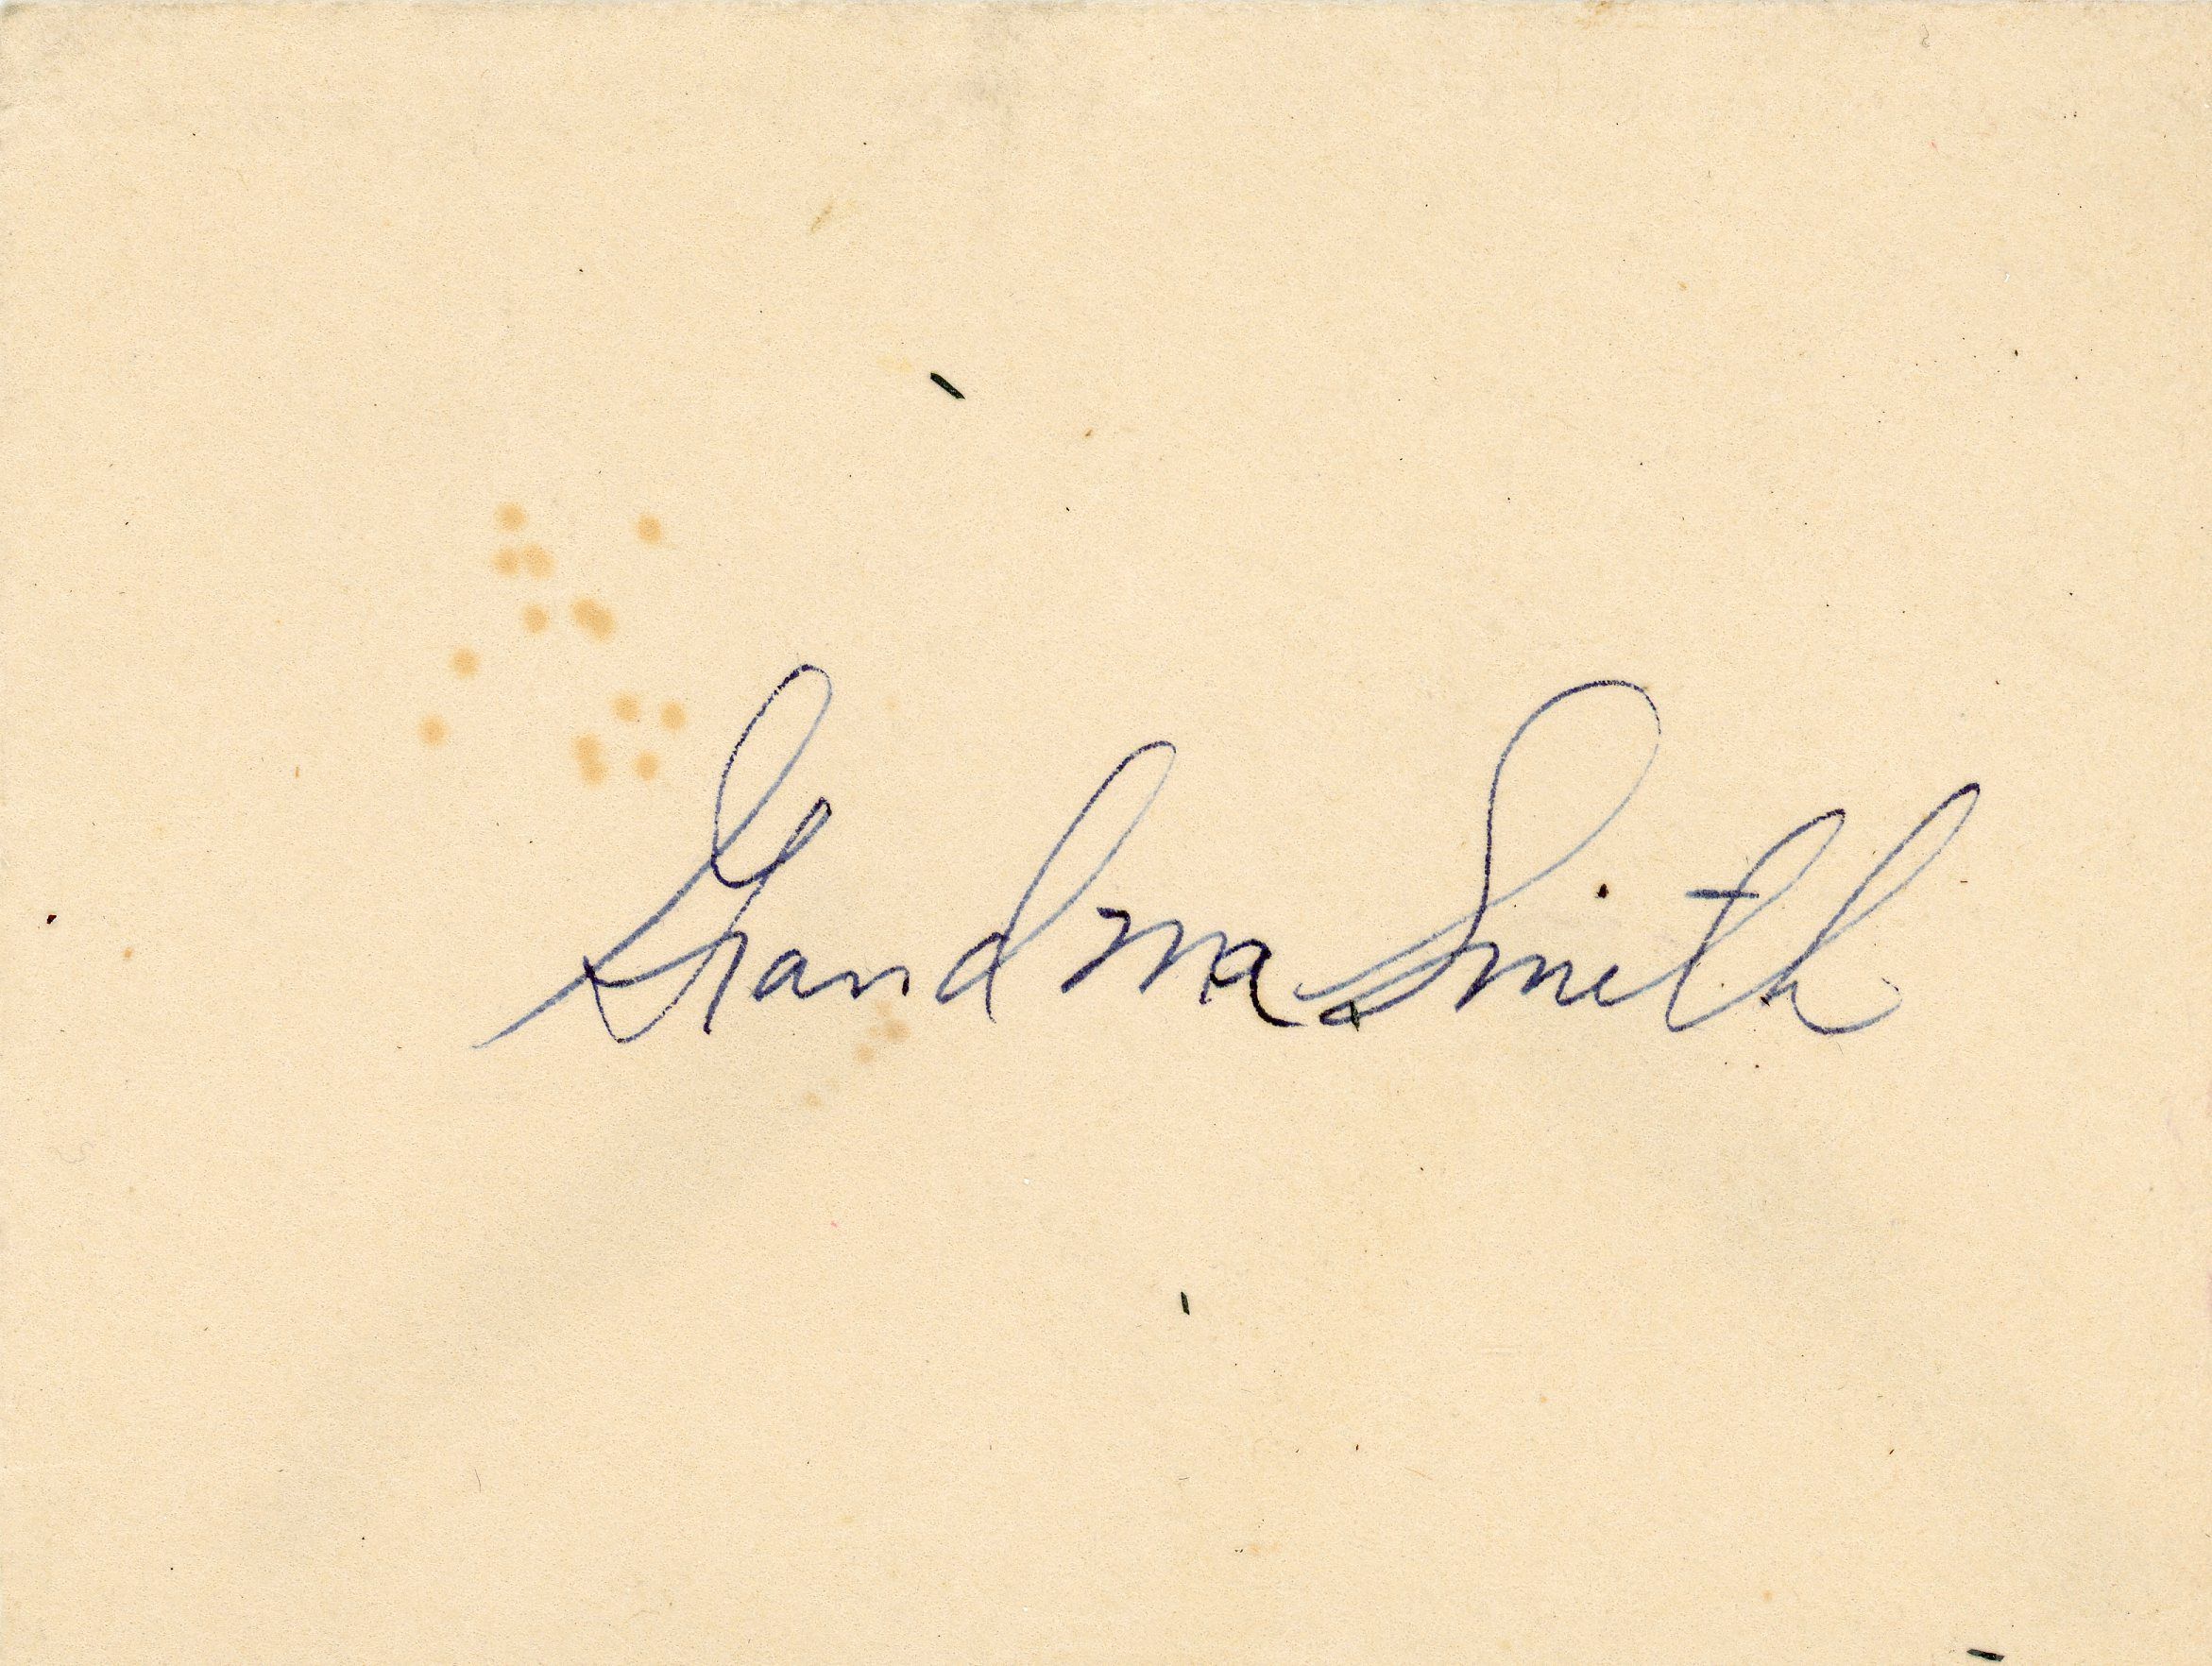 Grandma Smith